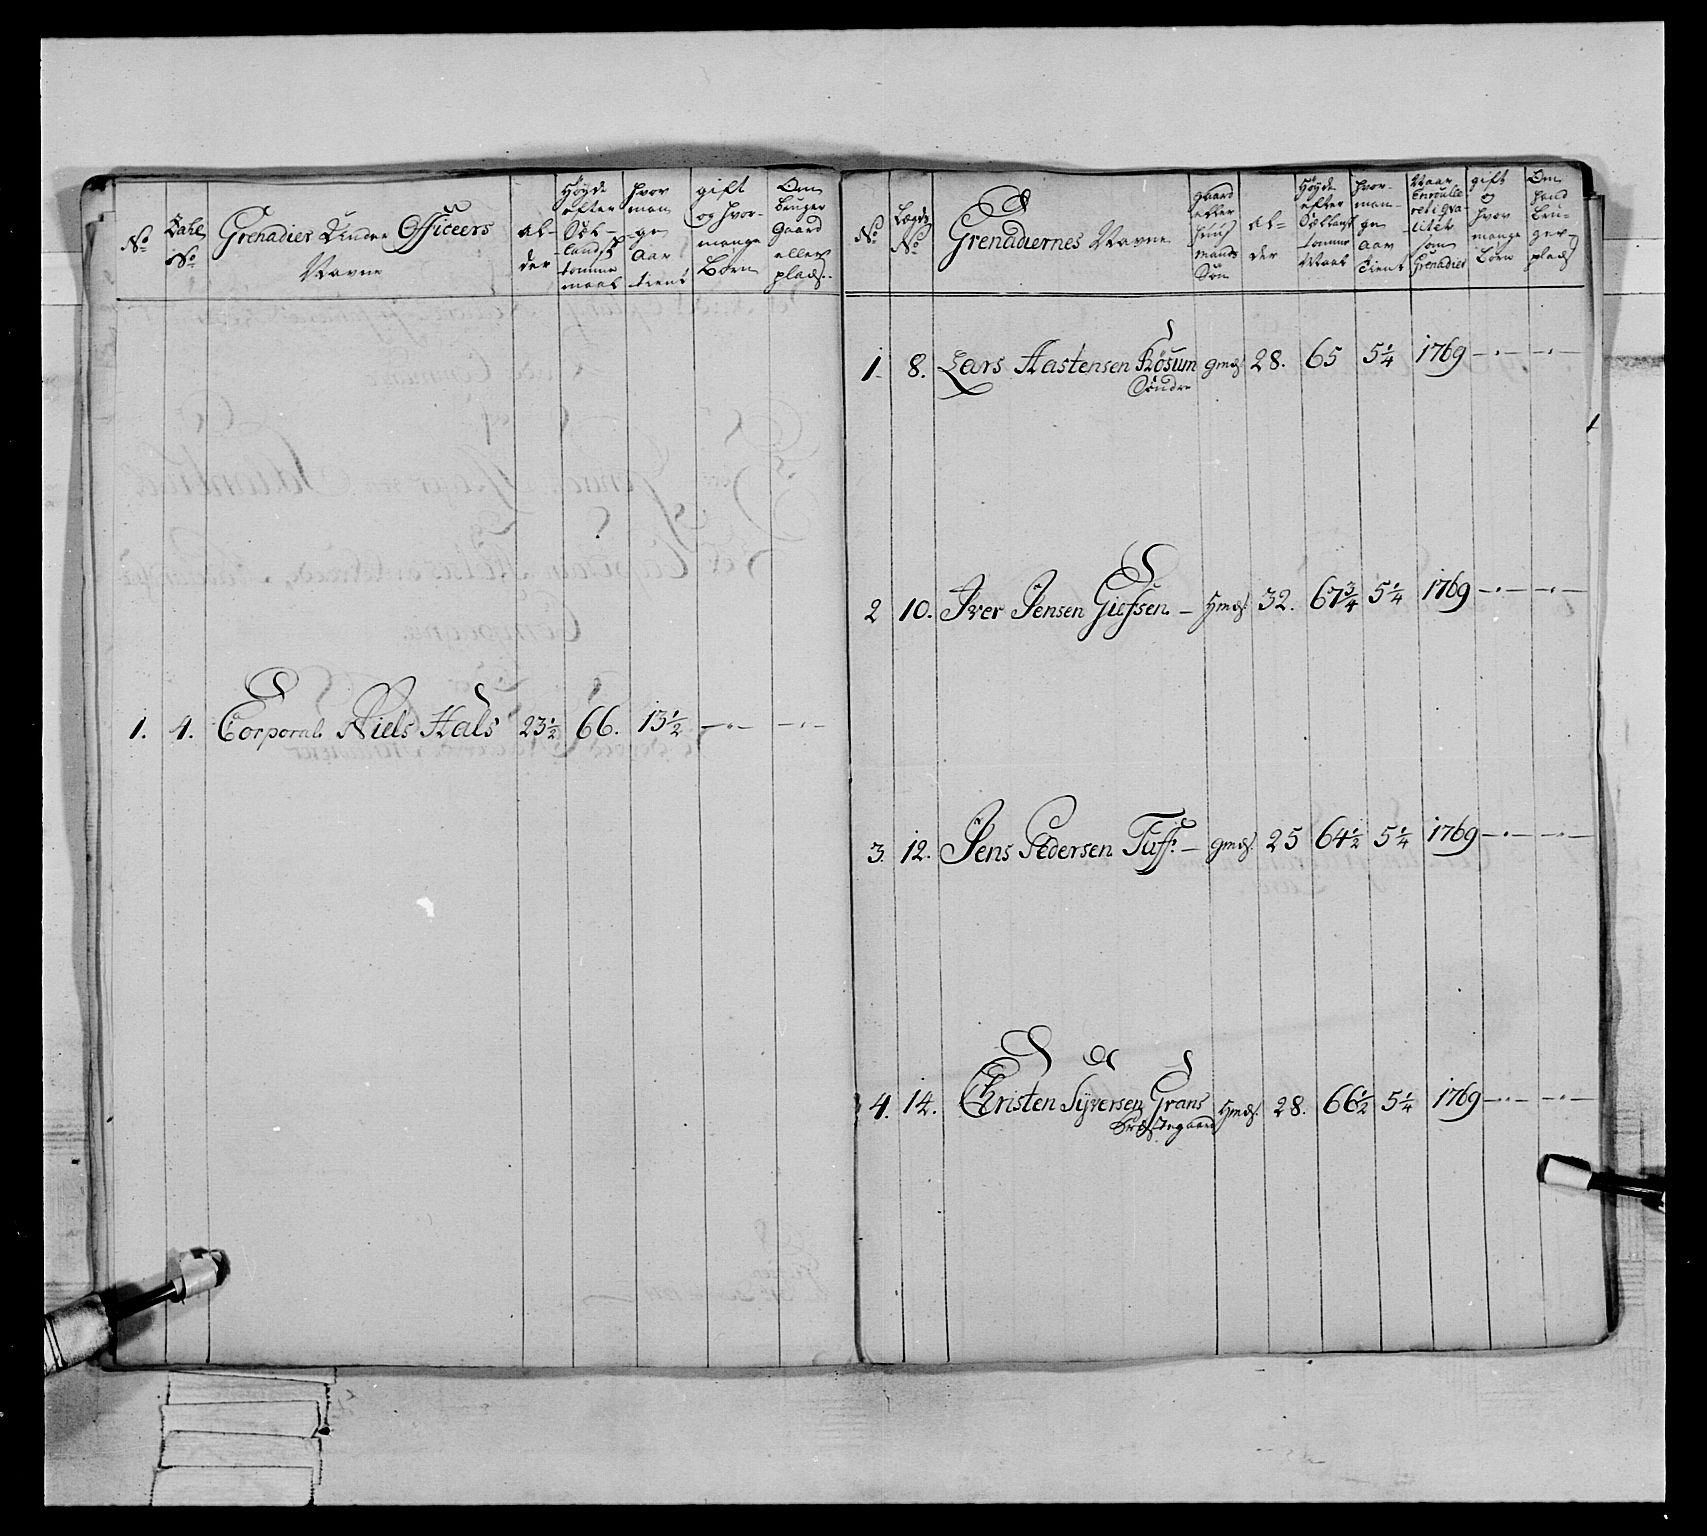 No
Tahl No
Grenadier Under Officeers Navne
Al-der
Høyde efter Siel-landsk tomme maal
hvor man-ge Aar tient
gift og hvor-mange Børn
Om bruger Gaard eller plads
1. 4. Corporal Niels Hals 23½ 66. 13½ — · — — · —
No
Lægds No
Grenadiernes Navne
gaard eller huus mands Søn
Al-der
Høyde efter tomme Maal
hvor-man-ge Aar tient
Naar Enroulle-ret i qva-litet som Grenadier
gift og hvor mange Børn
Om hand bru-ger plads
1. 8. Lars Hastensen Røsum gmds 28. 65 5¼ 1769 — · — — · —
Søndre
2 10. Iver Jensen Giefsen — hmds 32. 67¾ 5¼ 1769 — · — — · —
3. 12. Jens Pedersen Tuff: — gmds. 25 64½ 5¼ 1769 — · — — · —
4. 14. Christen Syversen Grans hmds. 28. 66½ 5¼ 1769 — · — — · —
Præstegaard